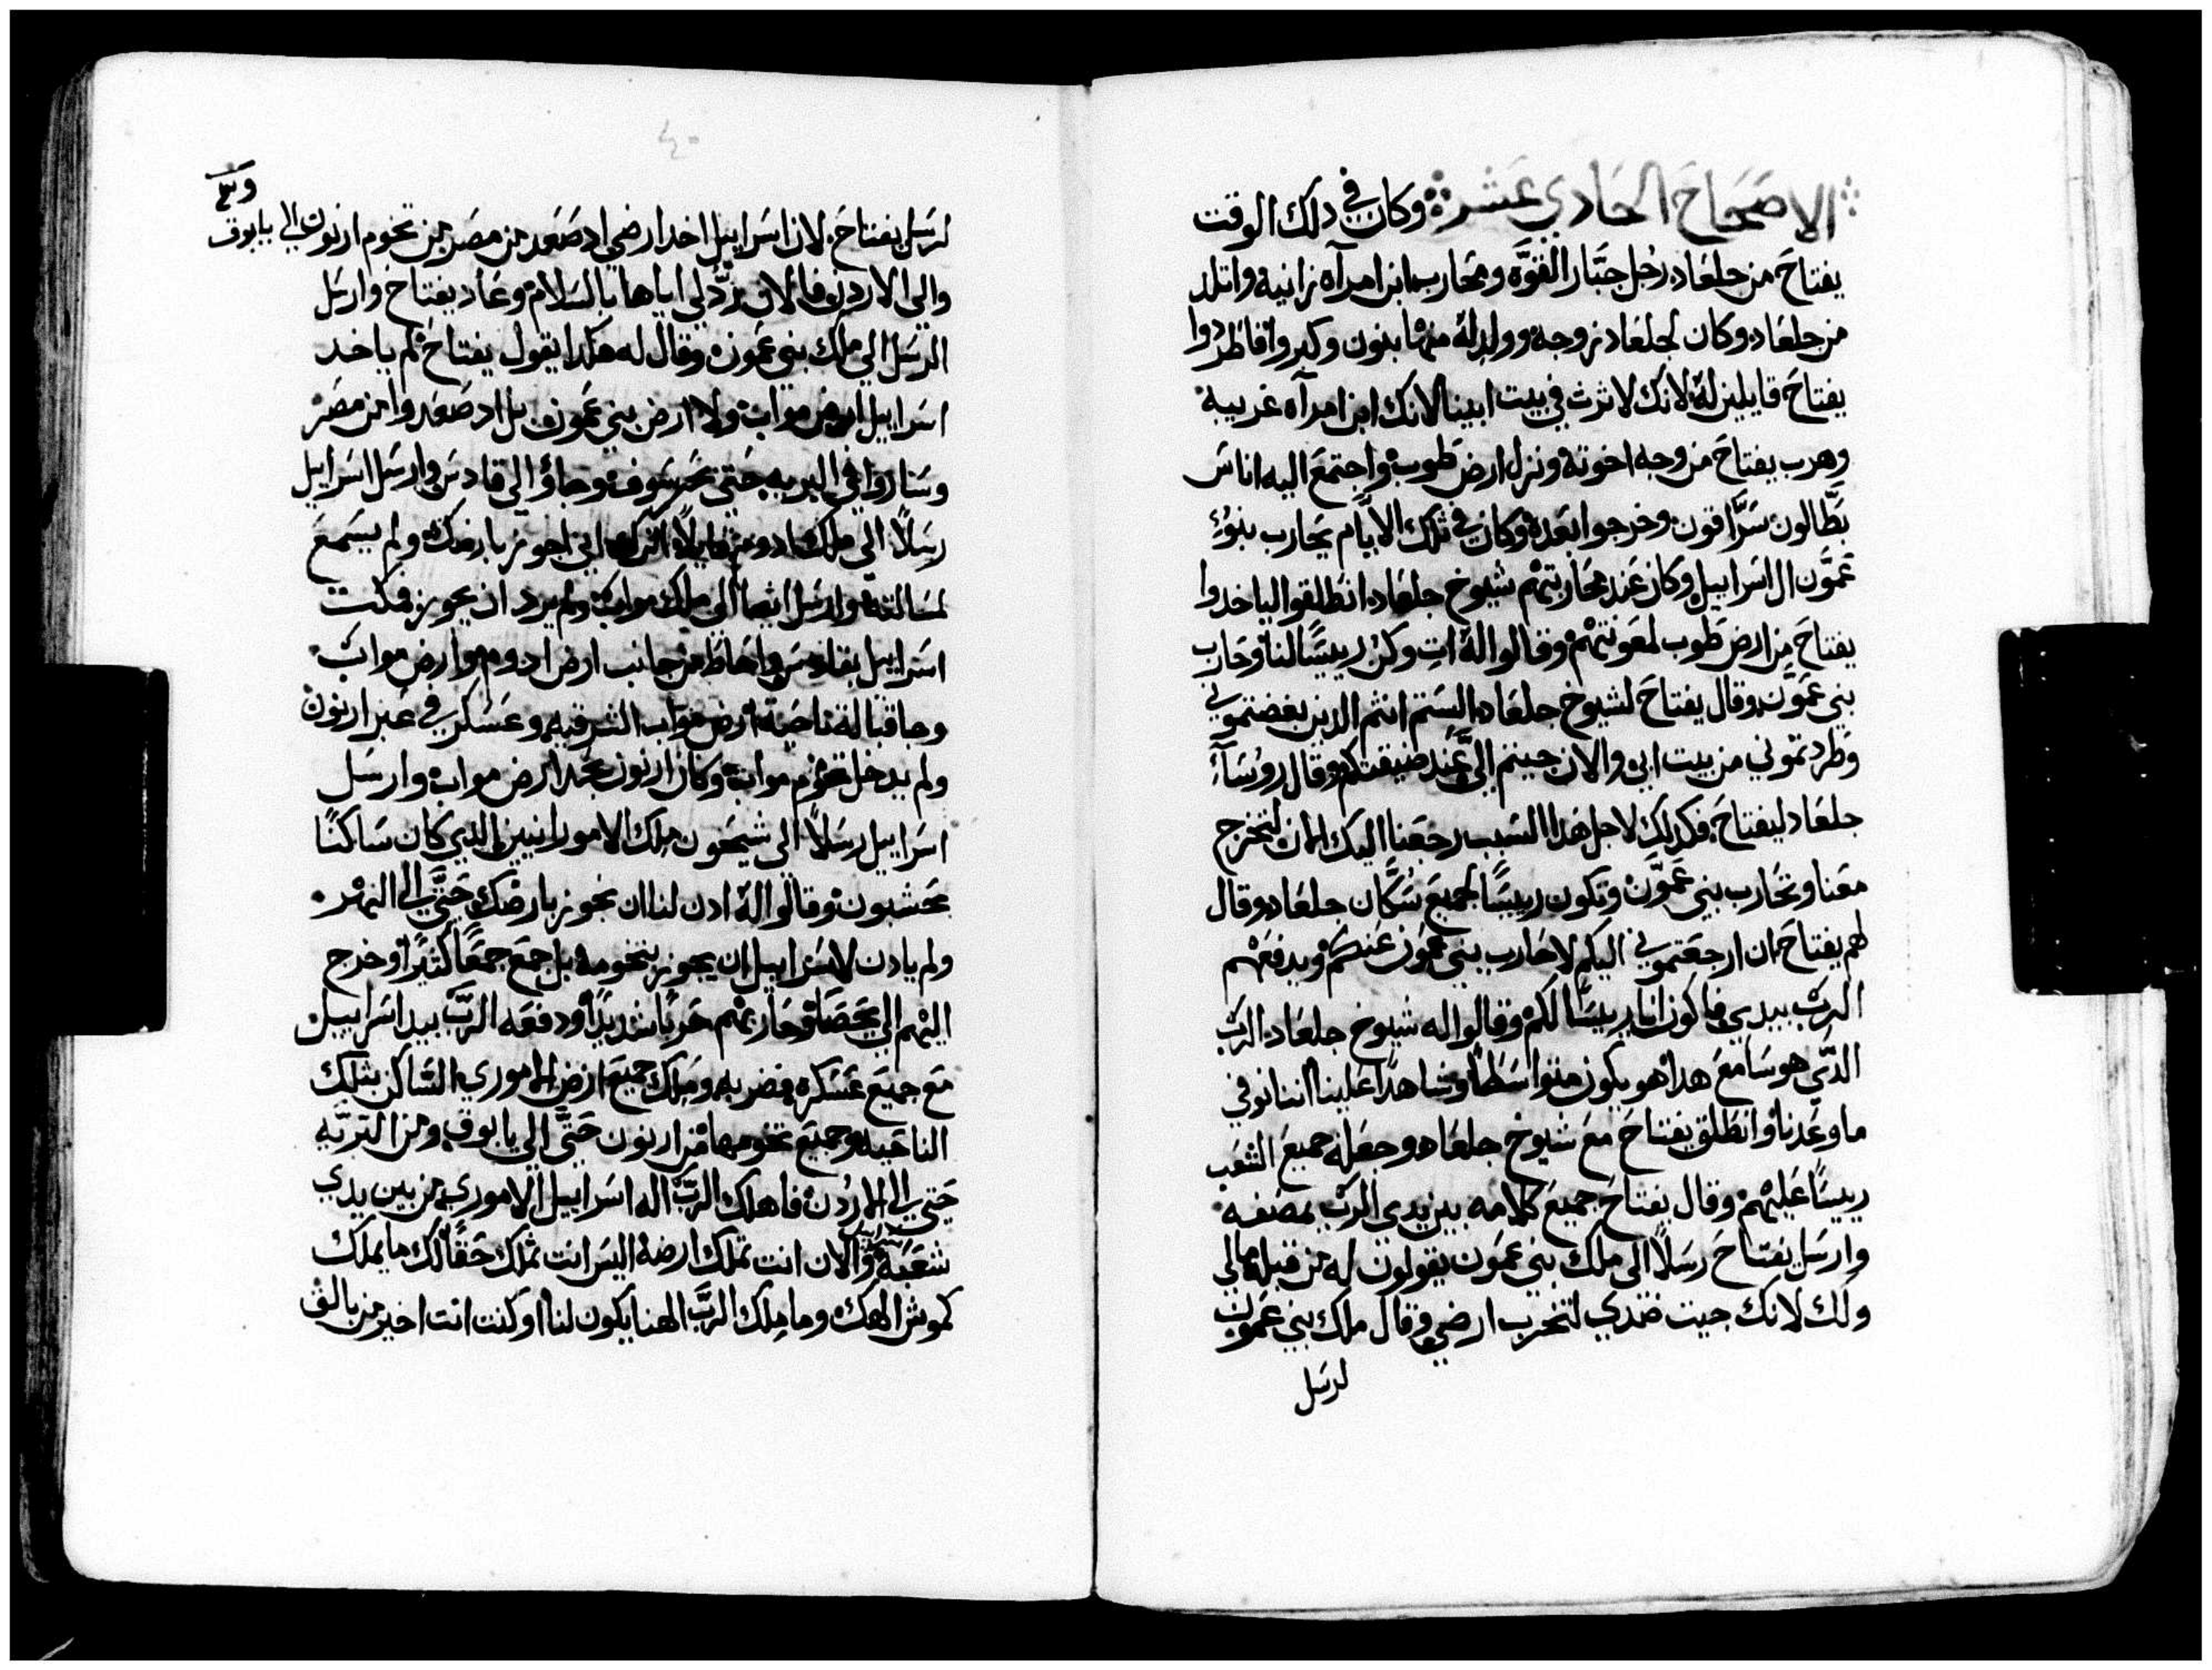 الاصحاح الحادي عشر وكان في دلك الوقت
يفتاح من جلعاد رجل جبار القوة ومحارب ابن امرآه زانية واتلد
من جلعاد وكان لجلعاد زوجة وولد له منها بنون وكبروا فاطردوا
يفتاح قايلين له لانك لا ترث في بيت ابينا لانك ابن امرآه غريبة
وهرب يفتاح من وجه اخوته ونزل ارض طوب واجتمع اليه اناس
بطالون سراقون وخرجوا بعده وكان في تلك الايام يحارب بنؤ
عمون ال اسراييل وكان عند محاربتهم شيوخ جلعاد انطلقوا لياخدوا
يفتاح من ارض طوب لمعونتهم وقالوا له ات وكن رييسا لنا وحارب
بني عمون وقال يفتاح لشيوخ جلعاد الستم انتم الدين بغضتموني
وطردتموني من بيت ابي والان جيتم الي عند ضيقتكم وقال روسآء
جلعاد ليفتاح فكدلك لاجل هدا السبب رجعنا اليك الان لتخرج
معنا وتحارب بني عمون وتكون رييسا لجميع سكان جلعاد وقال
لهم يفتاح ان ارجعتموني اليكم لاحارب بني عمون عنكم ويدفعهم
الرب بيدي فاكون انا رييسا لكم وقالوا له شيوخ جلعاد الرب
الدي هو سامع هدا هو يكون متواسطا وشاهدا علينا اننا نوفي
ما وعدنا وانطلق يفتاح مع شيوخ جلعاد وجعله جميع الشعب
رييسا عليهم وقال يفتاح جميع كلامه بين يدي الرب بمصفه
وارسل يفتاح رسلا الى ملك بني عمون يقولون له من قبله مالي
ولك لانك جيت ضدي لتخرب ارضي وقال ملك بني عمون
لرسل
٤٠
لرسل يفتاح لان اسراييل اخد ارضي اد صعد من مصر من تخوم ارنون الي يابوق
والي الاردن فالان رد لي اياها بالسلام وعاد يفتاح وارسل
الرسل الي ملك بني عمون وقال له هكدا يقول يفتاح لم ياخد
اسراييل ارض مواب ولا ارض بني عمون بل اد صعدوا من مصر
وساروا في البريه حتى بحر سوف وجاؤ الي قادس وارسل اسراييل
رسلا الي ملك ادوم قايلا اتركني اجوز بارضك ولم يسمع
لمسالته وارسل ايضا الى ملك مواب ولم يرد ان يجوز فمكت
اسراييل بقادس واحاط من جانب ارض ادوم وارض مواب
وجا قبالة ناحية ارض مواب الشرقيه وعسكر في عبر ارنون
ولم يدخل تخوم مواب وكان ارنون حد ارض مواب وارسل
اسراييل رسلا الى شيحون ملك الامورانيين الدي كان ساكنا
بحشبون وقالوا له ادن لنا ان نجوز بارضك حتى الي النهر
ولم يادن لاسراييل ان يجوز بتخومه بل جمع جمعا كثيرا وخرج
اليهم الي يحصا وحاربهم حربا شديدا ودفعه الرب بيد اسراييل
مع جميع عسكره فضربه وملك جميع ارض الاموري الساكن بتلك
الناحيه وجميع تخومها من ارنون حتى الي يابوق ومن البريه
حتي الي الاردن فاهلك الرب اله اسراييل الاموري من بين يدي
شعبه والان انت تملك ارضه اليس انت تملك حقا لك ما يملك
كموش الهك وما ملك الرب الهنا يكون لنا او كنت انت اخير من بالق